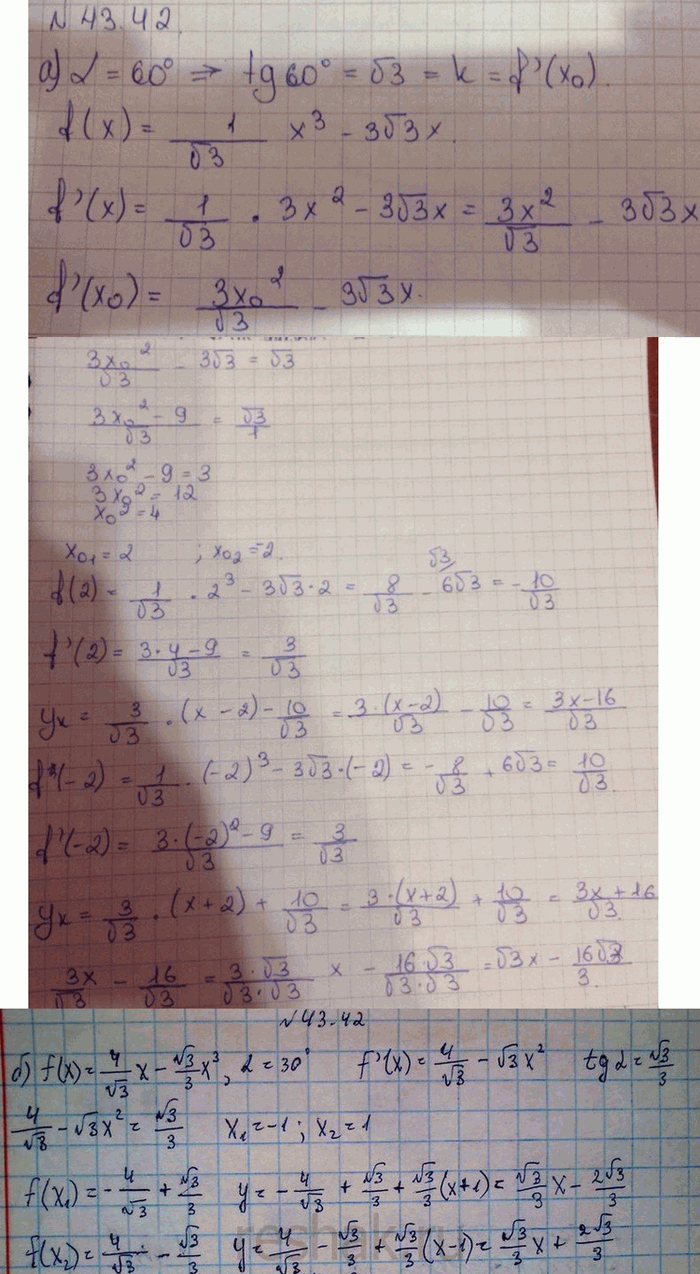 N 43.42.
а) α = 60° ⇒ tg 60° = √3 = k = f'(x₀).
f(x) = 1/√3 x³ - 3√3x.
f'(x) = 1/√3 · 3x² - 3√3x = 3x²/√3 - 3√3x
f'(x₀) = 3x₀²/√3 - 3√3x.
3x₀²/√3 - 3√3 = √3
(3x₀² - 9)/√3 = √3/1
3x₀² - 9 = 3
3x₀² = 12
x₀² = 4
x₀₁ = 2 ; x₀₂ = -2.
f(2) = 1/√3 · 2³ - 3√3 · 2 = 8/√3 - 6√3 (√3 = -10/√3
f'(2) = (3·4-9)/√3 = 3/√3
yₓ = 3/√3 · (x - 2) - 10/√3 = 3·(x-2)/√3 - 10/√3 = (3x-16)/√3
f(-2) = 1/√3 · (-2)³ - 3√3·(-2) = -8/√3 + 6√3 = 10/√3.
f'(-2) = (3·(-2)²-9)/√3 = 3/√3
yₓ = 3/√3 · (x+2) + 10/√3 = 3·(x+2)/√3 + 10/√3 = (3x+16)/√3.
3x/√3 - 16/√3 = 3·√3/(√3·√3) x - 16·√3/(√3·√3) = √3x - 16√3/3.
N 43.42
б) f(x) = 4/√3 x - √3/3 x³, α = 30° f'(x) = 4/√3 - √3x² tg α = √3/3
4/√3 - √3x² = √3/3 x₁ = -1 ; x₂ = 1
f(x₁) = -4/√3 + √3/3 y = -4/√3 + √3/3 + √3/3(x+1) = √3/3 x - 2√3/3
f(x₂) = 4/√3 - √3/3 y = 4/√3 - √3/3 + √3/3(x-1) = √3/3 x + 2√3/3